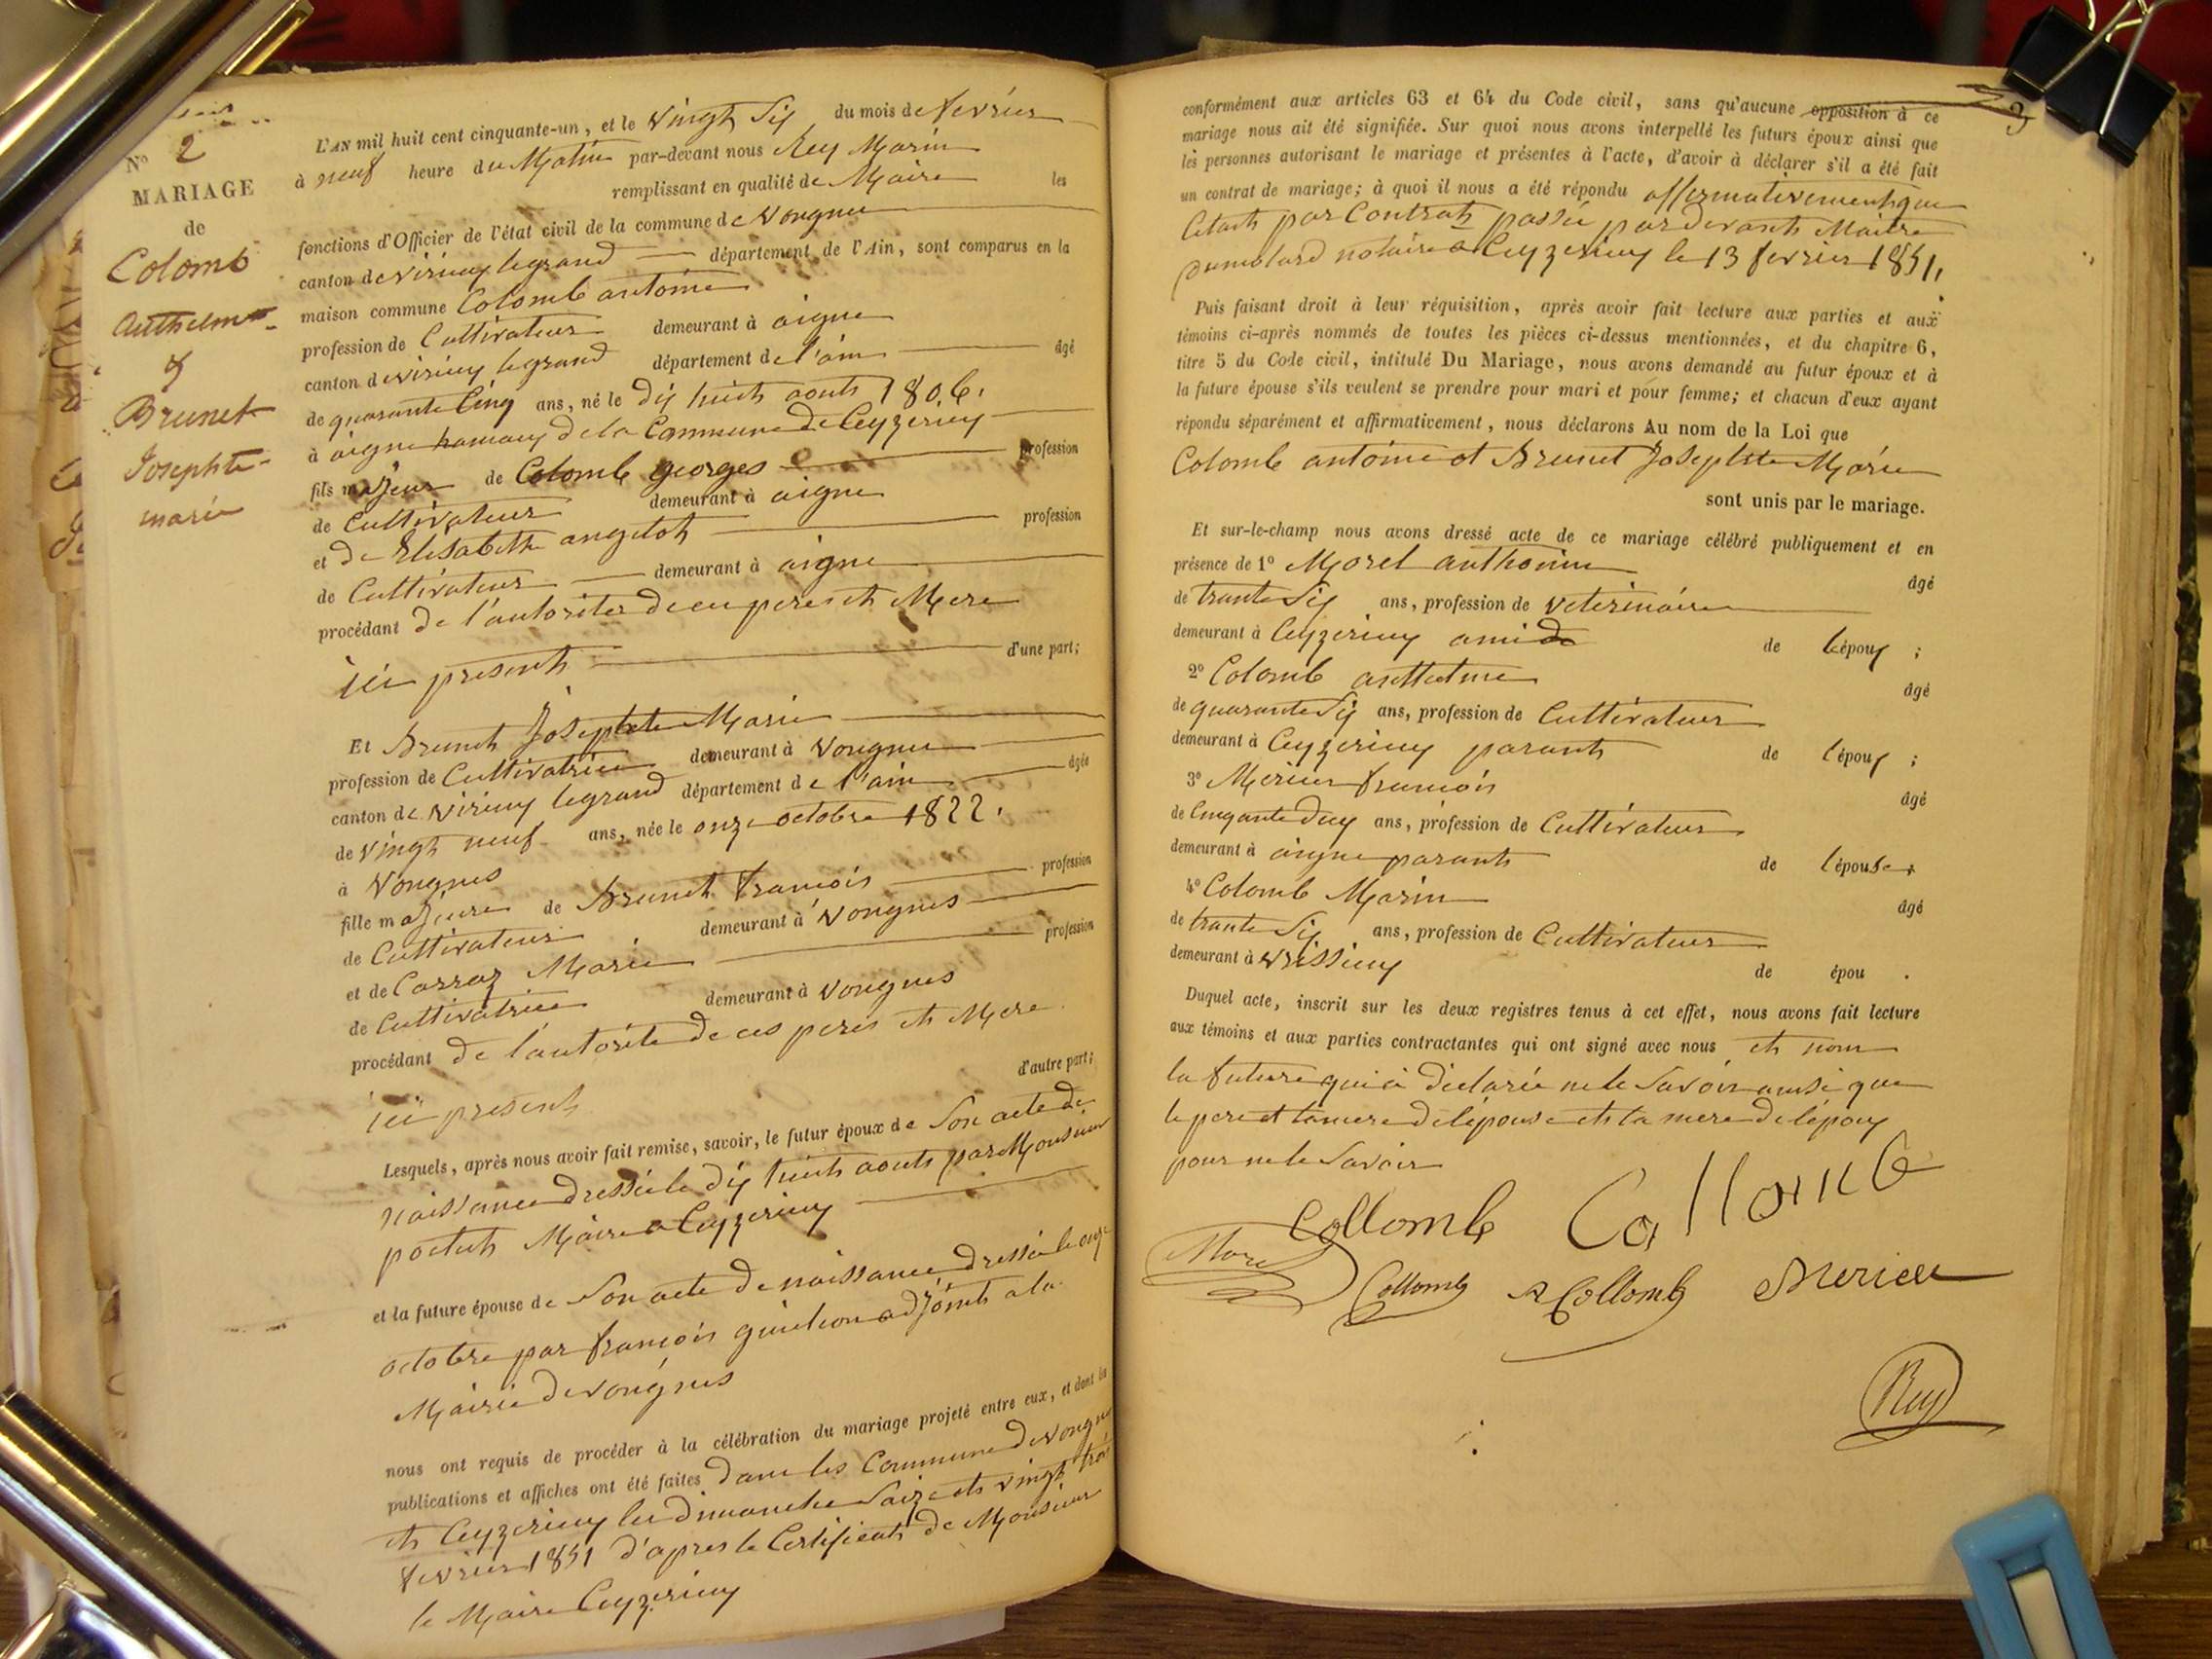 N° 2
MARIAGE
de
Colomb
Anthelme
&
Brunet
Josephte
marie
L'AN mil huit cent cinquante-un, et le vingt Six du mois de fevrier
à neuf heure du Matin par-devant nous Rey Marin
remplissant en qualité de Maire les
fonctions d'Officier de l'état civil de la commune de Vongne
canton de virieuy legrand département de l'Ain, sont comparus en la
maison commune Colomb antoine
profession de Cultivateur demeurant à aigne
canton de virieuy legrand département de l'ain âgé
de quarante Cinq ans, né le dix huit aout 1806.
à aigne hamauy de la Commune de Ceyzerieuy
fils majeur de Colomb georges profession
de Cultivateur demeurant à aigne
et de Elisabeth angelot profession
de Cultivateur demeurant à aigne
procédant de l'autorites de ceu peres et Mere
ici present d'une part;
Et Brunet Josephte Marie
profession de Cultivatrice demeurant à Vongne
canton de virieuy legrand département de l'ain âgée
de vingt neuf ans, née le onze octobre 1822.
à Vongnes
fille majeure de Brunet francois profession
de Cultivateur demeurant à Vongnes
et de Carraz Marie profession
de Cultivatrice demeurant à Vongnes
procédant de l'autorite de ces peres et Mere
ici present d'autre part;
Lesquels, après nous avoir fait remise, savoir, le futur époux de Son acte de
naissance dressée le dix huit aout par Monsieur
Maire a Ceyzerieuy
et la future épouse de Son acte de naissance dressée le onze
octobre par francois adjoint a la
Mairie de vongnes
nous ont requis de procéder à la célébration du mariage projeté entre eux, et dont les
publications et affiches ont été faites dans les Commune de vongne
et Ceyzerieuy les dimanche Saize et vingt trois
fevrier 1851 d'apres le Certificat de Monsieur
le Maire Ceyzerieuy
3
conformément aux articles 63 et 64 du Code civil, sans qu'aucune opposition à ce
mariage nous ait été signifiée. Sur quoi nous avons interpellé les futurs époux ainsi que
les personnes autorisant le mariage et présentes à l'acte, d'avoir à déclarer s'il a été fait
un contrat de mariage; à quoi il nous a été répondu affirmativement que
Cetait par Contrat passée par devant Maitre
dumolard notaire a Ceyzerieuy le 13 fevrier 1851,
Puis faisant droit à leur réquisition, après avoir fait lecture aux parties et aux
témoins ci-après nommés de toutes les pièces ci-dessus mentionnées, et du chapitre 6,
titre 5 du Code civil, intitulé Du Mariage, nous avons demandé au futur époux et à
la future épouse s'ils veulent se prendre pour mari et pour femme; et chacun d'eux ayant
répondu séparément et affirmativement, nous déclarons Au nom de la Loi que
Colomb antoine et Brunet Josephte Marie
sont unis par le mariage.
Et sur-le-champ nous avons dressé acte de ce mariage célébré publiquement et en
présence de 1° Morel anthonin âgé
de trante Six ans, profession de veterinaire
demeurant à Ceyzerieuy ami de Lépoux ;
2° Colomb anthelme âgé
de quarante Six ans, profession de Cultivateur
demeurant à Ceyzerieuy parant de l'époux ;
3° Merieu francois âgé
de Cinqante duy ans, profession de Cultivateur
demeurant à aigne parant de l'épouse ;
4° Colomb Marin âgé
de trante Six ans, profession de Cultivateur
demeurant à vrissieuy de épou .
Duquel acte, inscrit sur les deux registres tenus à cet effet, nous avons fait lecture
aux témoins et aux parties contractantes qui ont signé avec nous et non
la future qui a déclarée ne le Savoir ausi que
le pere et la mere de l'épouse et la mere de lépoux
pour ne le Savoir
Collomb Collomb
Morel Collomb Collomb Merieu
Rey